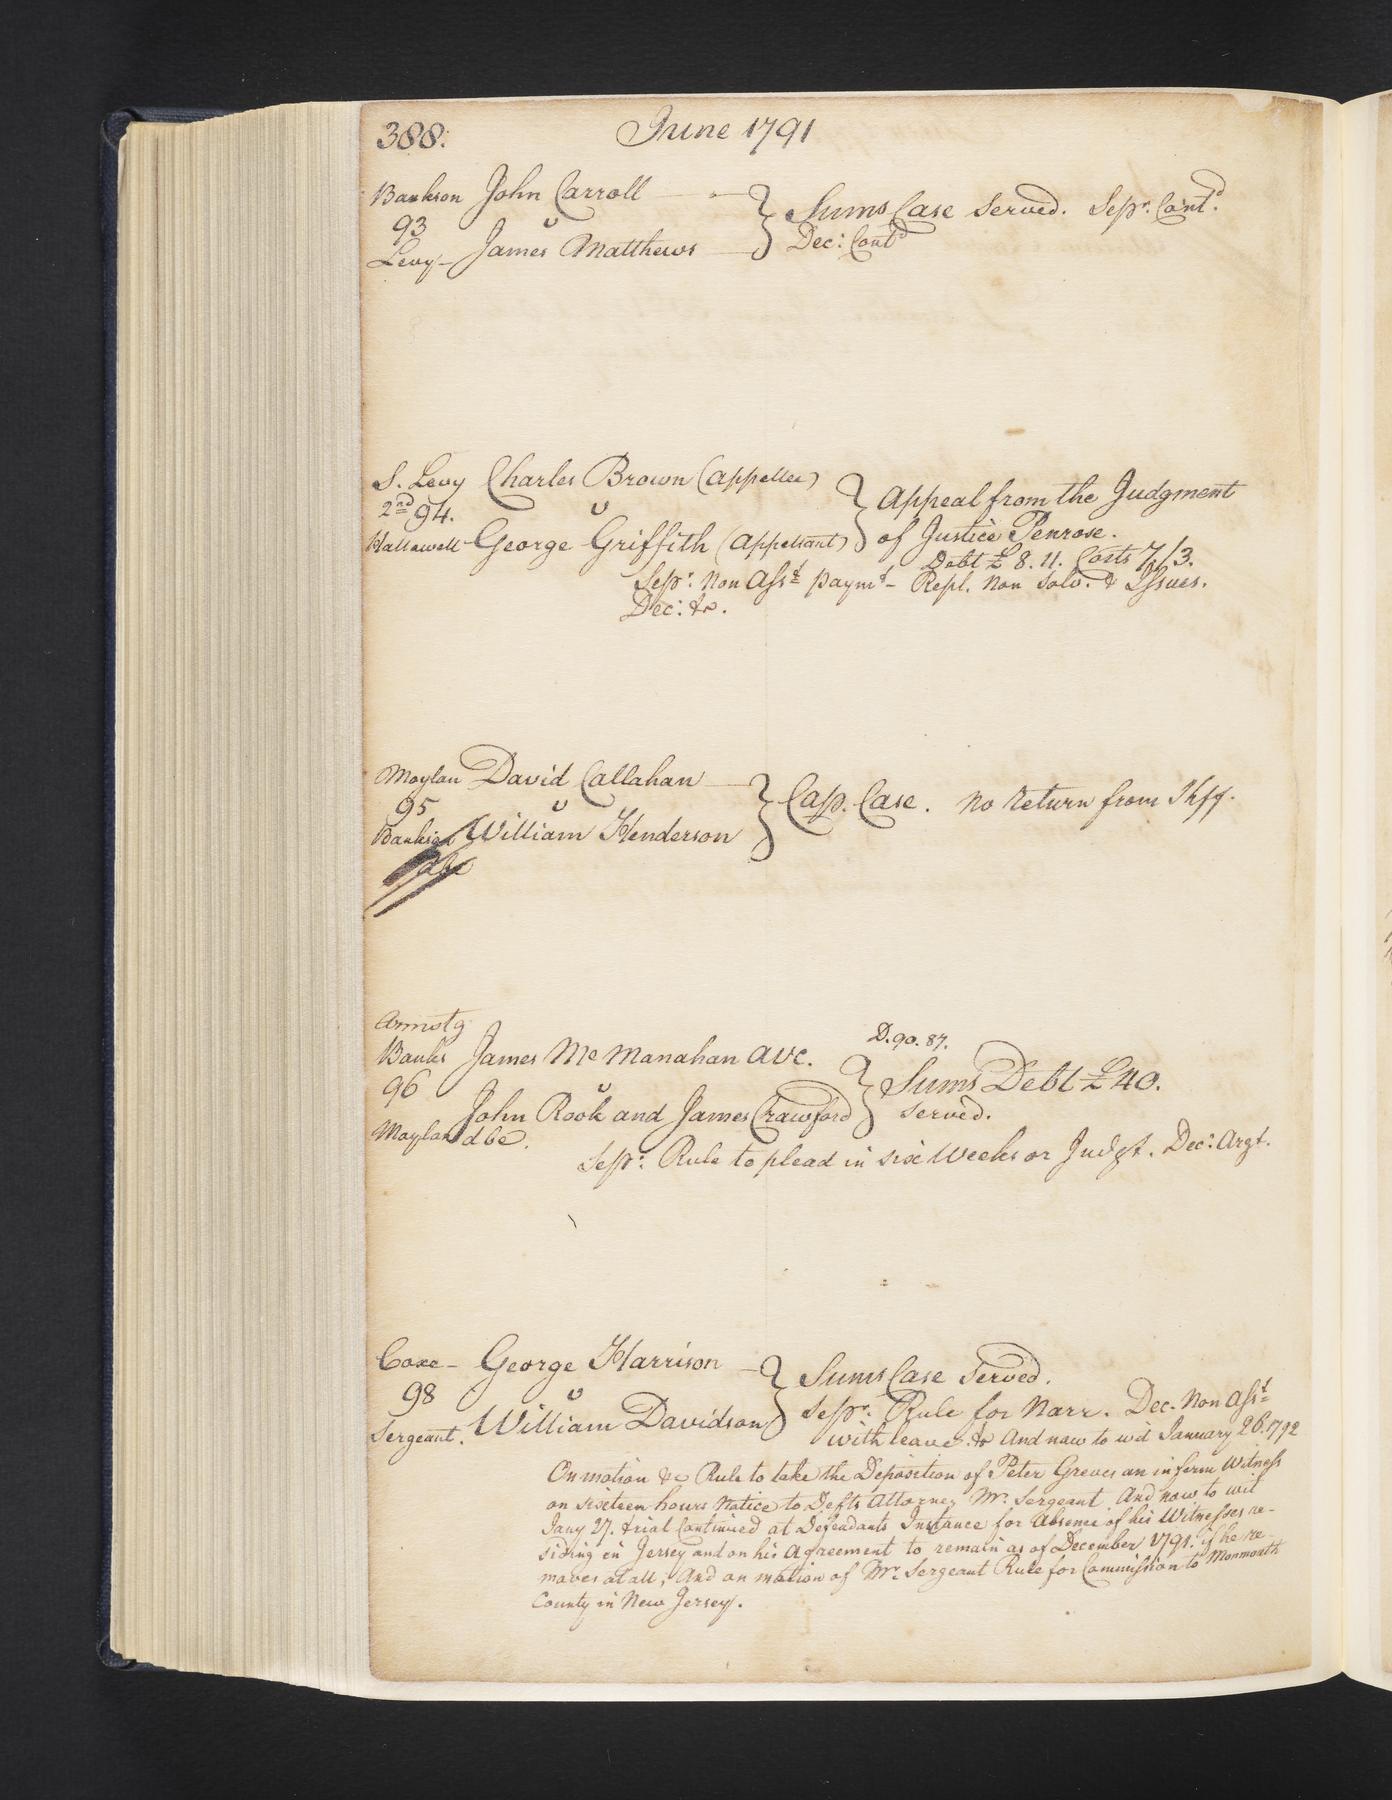 388.
June 1791
Bankson John Carroll
93 v
Levy- James Matthews
Sums Case Served. Sepr. Contd.
Dec: Contd
S. Levy Charles Brown (appellee)
2nd 94. v
Hallowell George Griffith (appellant)
Appeal from the Judgment
of Justice Penrose.
Debt £8.11. Costs 7/3.
Sepr. Non Asst paymt- Repl. Non Solv. & Issues.
Dec: &c.
Moylan David Callahan
95 v
Bankson William Henderson
Cap. Case. No Return from Shff.
Armstg
Banks James Mc Manahan
96 v
John Rook and James Crawford
Moylan dbe.
D. 90. 87.
Sums Debt £40.
Served.
Sepr: Rule to plead in six Weeks or Judgt. Dec: Argt.
Coxe- George Harrison
98 v
Sergeant. William Davidson
Sums Case Served.
Sepr. Rule for Narr. Dec. Non Asst
with leave &c And now to wit January 26. 1792
On motion &c Rule to take the Deposition of Peter Greves an infirm Witness
on sixteen hours Notice to Defts Attorney Mr. Sergeant And now to wit
Jany 27. trial Continued at Defendants Instance for Absence of his Witnesses re-
siding in Jersey and on his Agreement to remain as of December 1791. if he re-
moves at all; And on motion of Mr. Sergeant Rule for Commission to Monmouth
County in New Jersey.